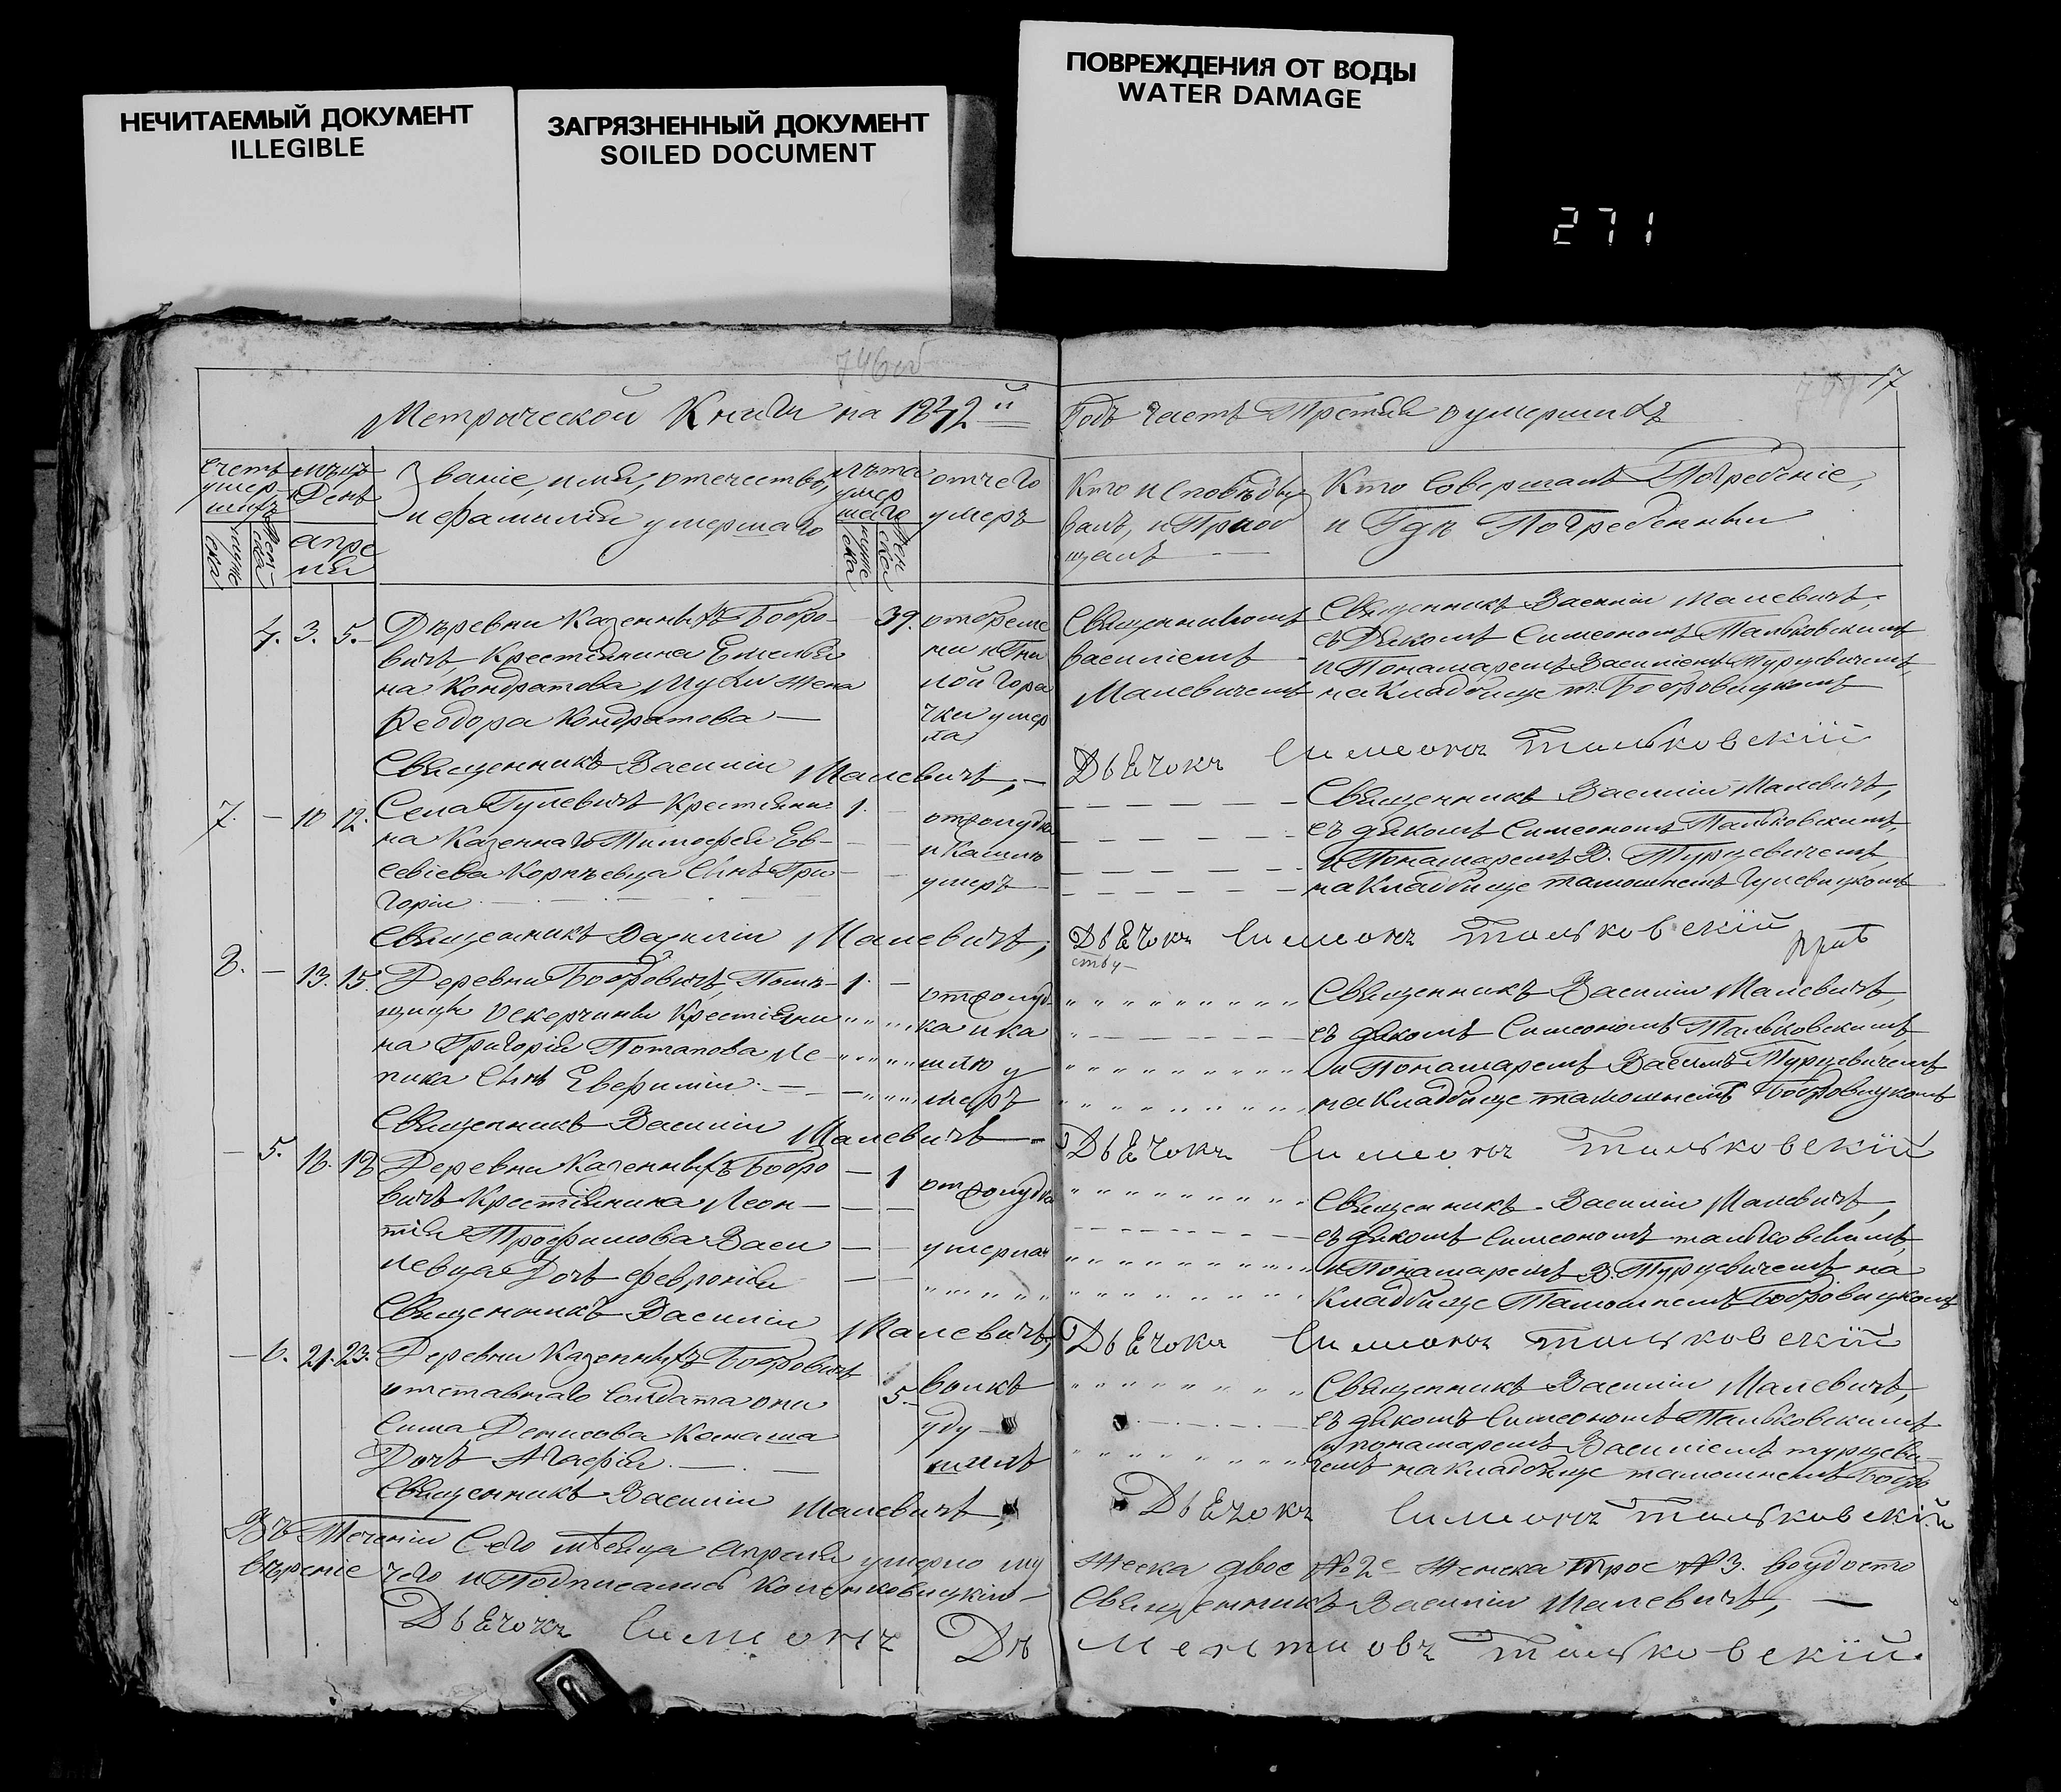 НЕЧИТАЕМЫЙ ДОКУМЕНТ
ILLEGIBLE
ЗАГРЯЗНЕННЫЙ ДОКУМЕНТ
SOILED DOCUMENT
ПОВРЕЖДЕНИЯ ОТ ВОДЫ
WATER DAMAGE
271
746 об
17
Метрической Книги на 1842й
Годъ Часть Третія о умершихъ
Счетъ умершихъ
мужеска
женска
День
апреля
Званіе, имя, отечество,
и фамилія умершаго
Лѣта умершаго
мужеска
женска
отчего
умеръ
Кто исповѣды
валъ, и Приоб
щалъ
Кто Совершалъ Погребеніе,
и Гдѣ Погребенны
4. 3. 5. Деревни Казенныхъ Бобро-
вичъ, Крестьянина Емелья
на Кондратова жена
Феодора Кондратова —
39.
от
ни и Гни
лой Горя
чки умер
ла
Священникомъ
Василіемъ
Малевичемъ
Священникъ Василіи Малевичъ,
съ дьякомъ Симеономъ Тальковскимъ
и Понамаремъ Василіемъ Турцевичемъ,
на кладбище т. Бобровицкомъ
Священникъ Василіи Малевичъ,—
Дьячокъ Симионъ Тальковскій
7. — 10 12. Села Гулевичъ Крестьяни
на Казеннаго Тимофея Ев-
севіева Корнѣевца Сынъ Гри-
горіи
1.
и Кашлю
умеръ
Священникъ Василіи Малевичъ,
съ дьякомъ Симеономъ Тальковскимъ,
и Понамаремъ В. Турцевичемъ,
на кладбище тамошнемъ Гулевицкомъ
Священникъ Василіи Малевичъ,
Дьячокъ Симионъ Тальковскій
8. — 13. 15. Деревни Бобровичъ, Помѣ-
щицы Крестьяни
на Григорія Потапова Ле-
пика Сынъ Евфимiи. —
1.
ка и ка
шлю у
меръ
Священникъ Василіи Малевичъ,
съ дьякомъ Симеономъ Тальковскимъ,
и Понамаремъ Турцевичемъ
на кладбище тамошнемъ Бобровицкомъ
Священникъ Василіи Малевичъ —
Дьячокъ Симионъ Тальковскій
— 5. 18. Деревни Казенныхъ Бобро
вичъ Крестьянина Леон-
тія Трофимова Васи
левца Дочь Февронія
1
умерла
Священникъ Василіи Малевичъ,
съ дьякомъ Симеономъ Тальковскимъ,
и Понамаремъ В. Турцевичемъ на
кладбище Тамошнемъ Бобровицкомъ
Священникъ Василіи Малевичъ,
Дьячокъ Симионъ Тальковскій
— 6. 21. 23. Деревни Казенныхъ Бобровичъ
отставнаго Солдата Они
сима Денисова
Дочь Агафія. —
5.
волкъ
уду
шилъ
Священникъ Василіи Малевичъ,
съ дьякомъ Симеономъ Тальковскимъ
и понамаремъ Василіемъ турцеви-
чемъ на кладбище тамошнемъ Бобро
Священникъ Василіи Малевичъ,
Дьячокъ Симионъ Тальковскій
Въ Теченіи Сего мѣсяца Апреля умерло му
жеска двое №2е женска трое №3. во удосто
вѣреніе чего и Подписались
Священникъ Василіи Малевичъ, —
Дьячокъ Симионъ Де
ментиовъ Тальковскій.